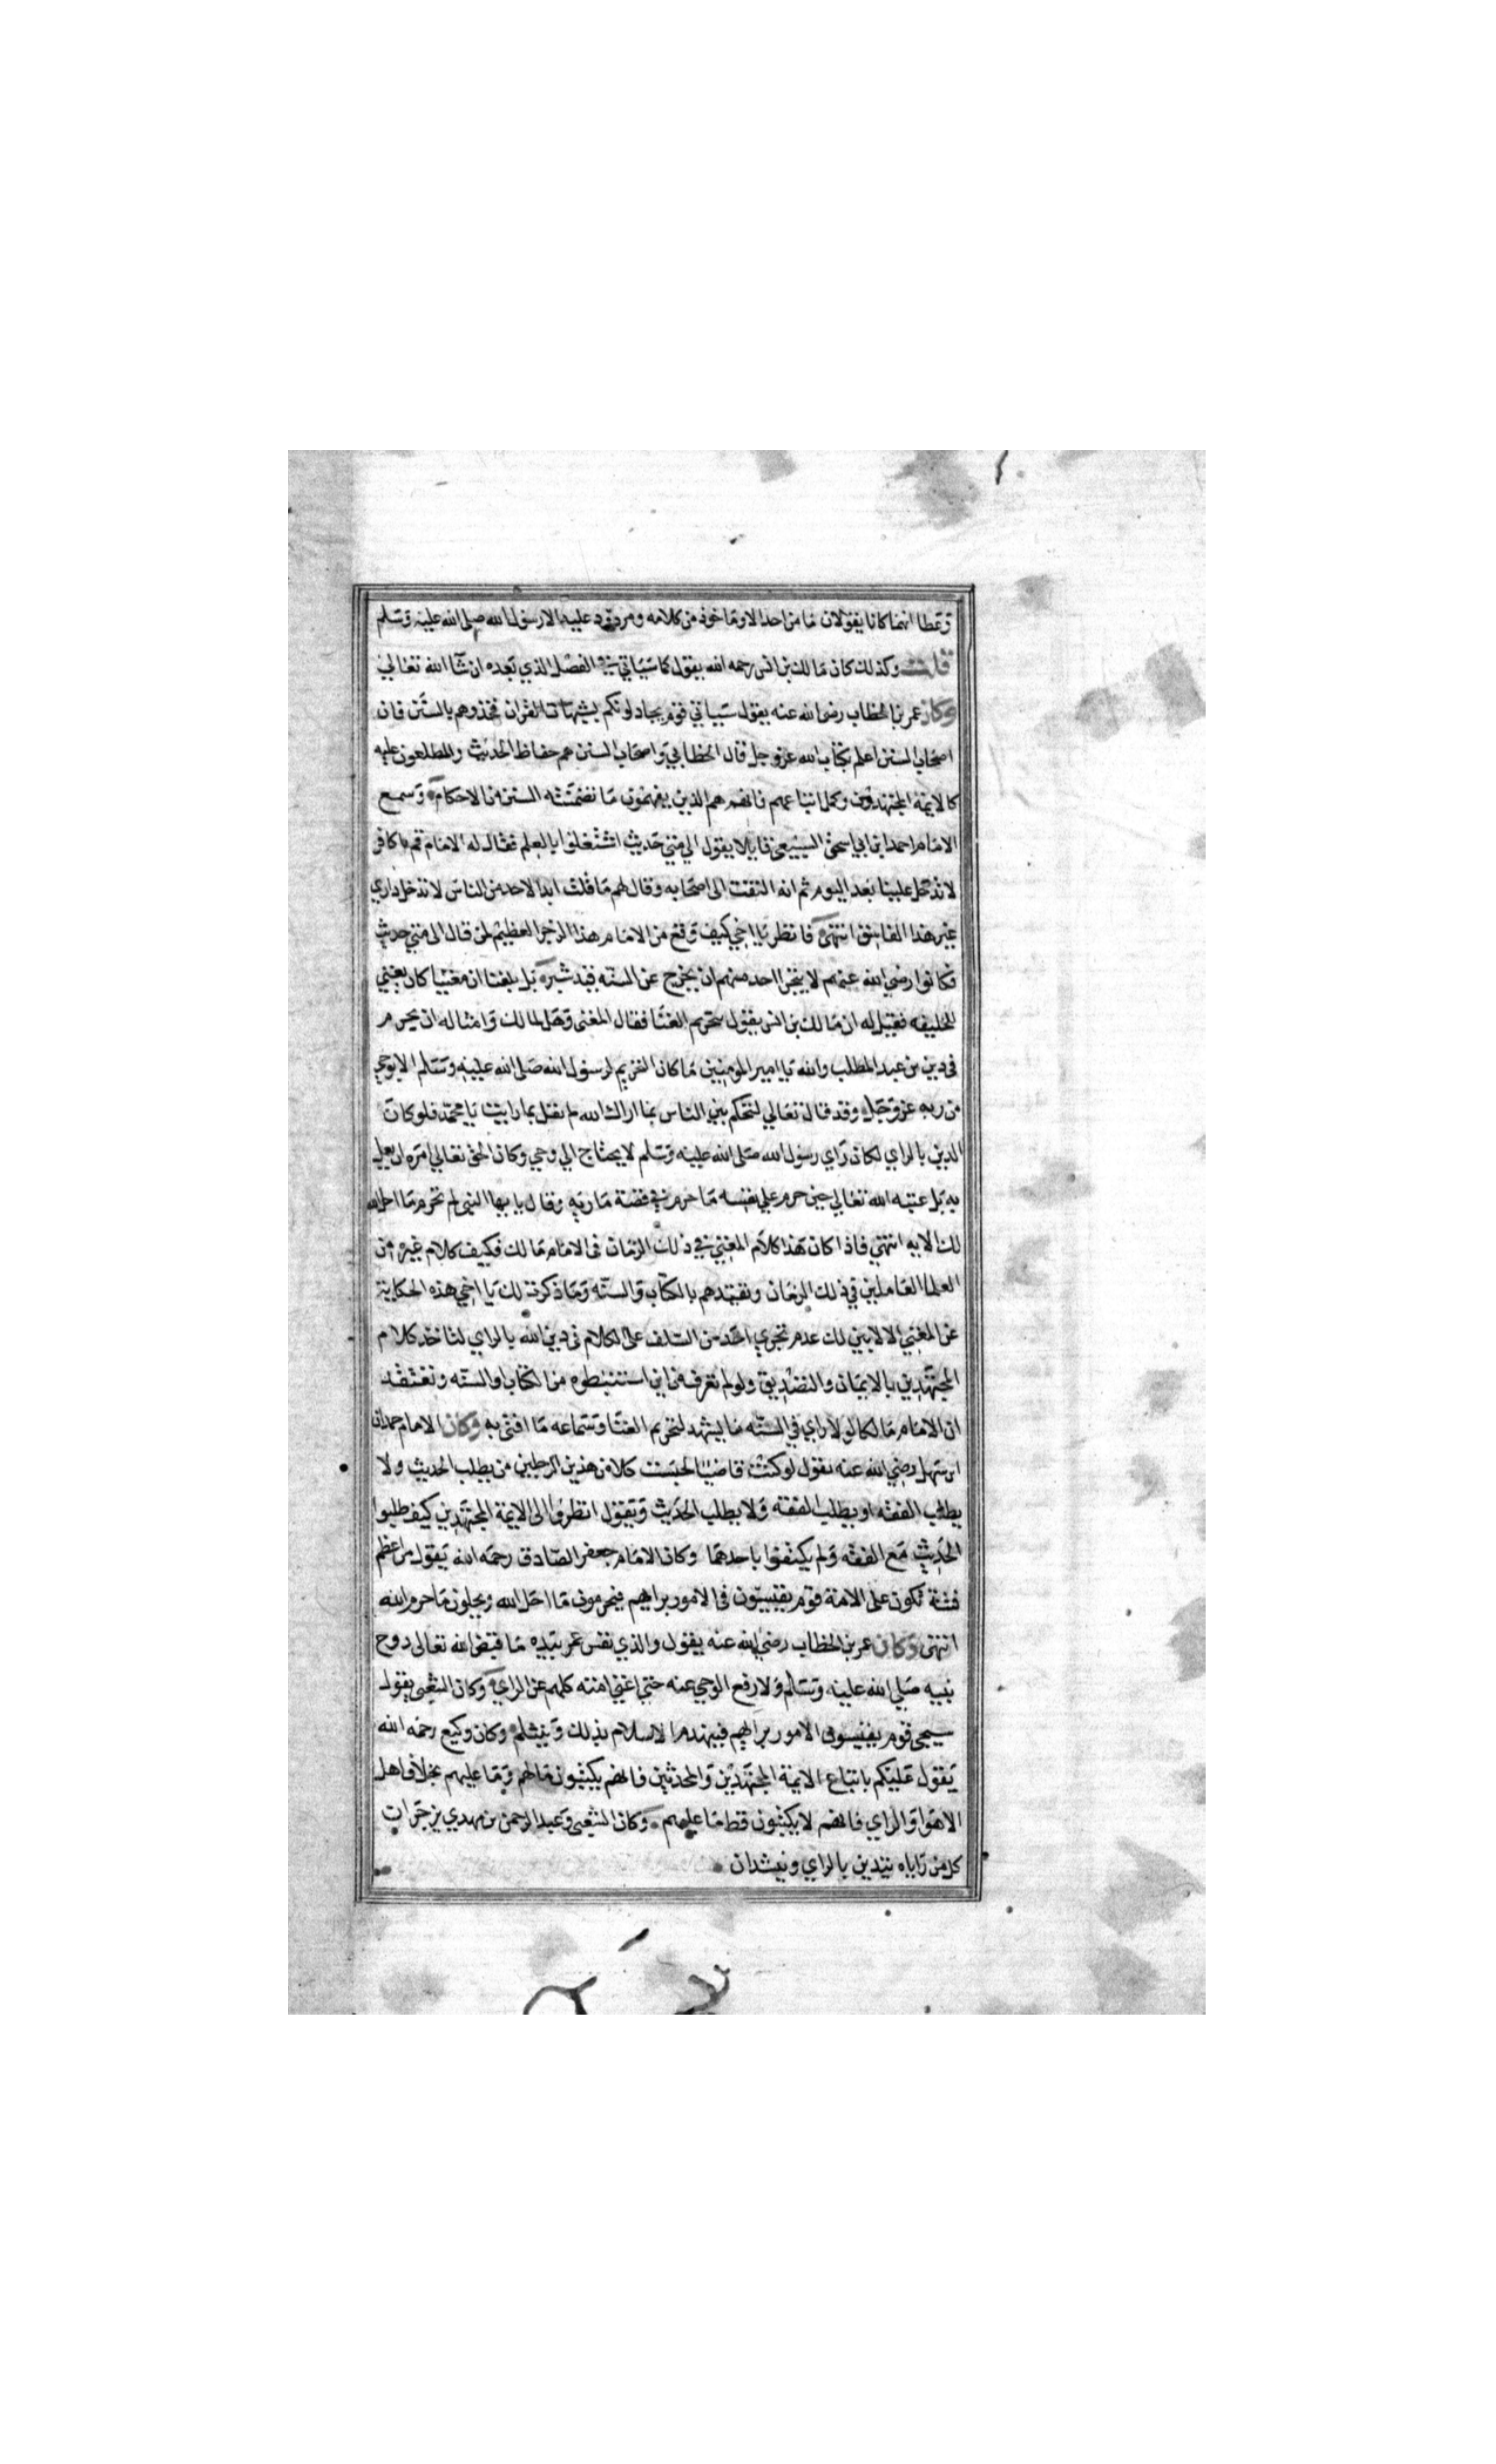 وعطا انهما كانا يقولان ما من احد الا وماخوذ من كلامه ومردود عليه الا رسول الله صلى الله عليه وسلم
قلت وكذلك كان مالك بن انس رحمه الله يقول كما سياتي في الفصل الذي بعده ان شا الله تعالى
وكان عمر بن الخطاب رضى الله عنه يقول سياتي قوم يجادلونكم بشبهات القران فخذوهم بالسنن فان
اصحاب السنن اعلم بكتاب الله عز وجل قال الخطابي واصحاب السنن هم حفاظ الحديث والمطلعون عليه
كالايمة المجتهدين وكمل اتباعهم فانهم هم الذين يفهمون ما تضمنته السنن من الاحكام وسمع
الامام احمد ابن ابي اسحق السبيعى قايلا يقول الي متي حديث اشتغلوا بالعلم فقال له الامام قم يا كافر
لا تدخل علينا بعد اليوم ثم انه التفت الى اصحابه وقال لهم ما قلت ابدا لاحد من الناس لا تدخل داري
غير هذا الفاسق انتهى فانظر يا اخي كيف وقع من الامام هذا الزجر العظيم لمن قال الى متي حديث
فكانوا رضي الله عنهم لا يتجرا احد منهم ان يخرج عن السنه قيد شبر بل بلغنا ان مغنيا كان يغني
للخليفه فقيل له ان مالك بن انس يقول بتحريم الغنا فقال المغنى وهل لمالك وامثاله ان يحرم
فى دين بن عبد المطلب والله يا امير المومنين ما كان التحريم لرسول الله صلى الله عليه وسلم الا بوحي
من ربه عز وجل وقد قال تعالي لتحكم بين الناس بما اراك الله لم يقل بما رايت يا محمد فلو كان
الدين بالراي لكان راي رسول الله صلى الله عليه وسلم لا يحتاج الي وحي وكان الحق تعالي امره ان يعمل
به بل عتبه الله تعالي حين حرم علي نفسه ما حرم في قصة ماريه وقال يا يها النبي لم تحرم ما احل الله
لك الايه انتهي فاذا كان هذا كلام المغني في ذلك الزمان فى الامام مالك فكيف كلام غيره من
العلما العاملين في ذلك الزمان وتقيدهم بالكتاب والسنه وما ذكرت لك يا اخي هذه الحكاية
عن المغني الا لابين لك عدم تجري احد من السلف على الكلام فى دين الله بالراي لتاخذ كلام
المجتهدين بالايمان والتصديق ولو لم تعرف من اين استنبطوه من الكتاب والسنه وتعتقد
ان الامام مالكا لولا راي في السنه ما يشهد لتحريم الغنا وسماعه ما افتى به وكان الامام حمدان
ابن سهل رضي الله عنه يقول لو كنت قاضيا لحبست كلا من هذين الرجلين من يطلب الحديث ولا
يطلب الفقه او يطلب الفقه ولا يطلب الحديث ويقول انظروا الى الايمة المجتهدين كيف طلبوا
الحديث مع الفقه ولم يكتفوا باحدهما وكان الامام جعفر الصادق رحمه الله يقول من اعظم
فتنة تكون على الامة قوم يقيسون فى الامور برايهم فيحرمون ما احل الله ويحلون ما حرم الله
انتهى وكان عمر بن الخطاب رضي الله عنه يقول والذي نفس عمر بيده ما قبض الله تعالى روح
نبيه صلي الله عليه وسلم ولا رفع الوحي عنه حتي اغني امته كلهم عن الراي وكان الشعبى يقول
سيجى قوم يقيسون الامور برايهم فينهدم الاسلام بذلك وينثلم وكان وكيع رحمه الله
يقول عليكم باتباع الايمة المجتهدين والمحدثين فانهم يكتبون مالهم وما عليهم بخلاف اهل
الاهوا والراي فانهم لا يكتبون قط ما عليهم وكان الشعبى وعبد الرحمن بن مهدي يزجران
كل من راياه يتدين بالراي وينشدان